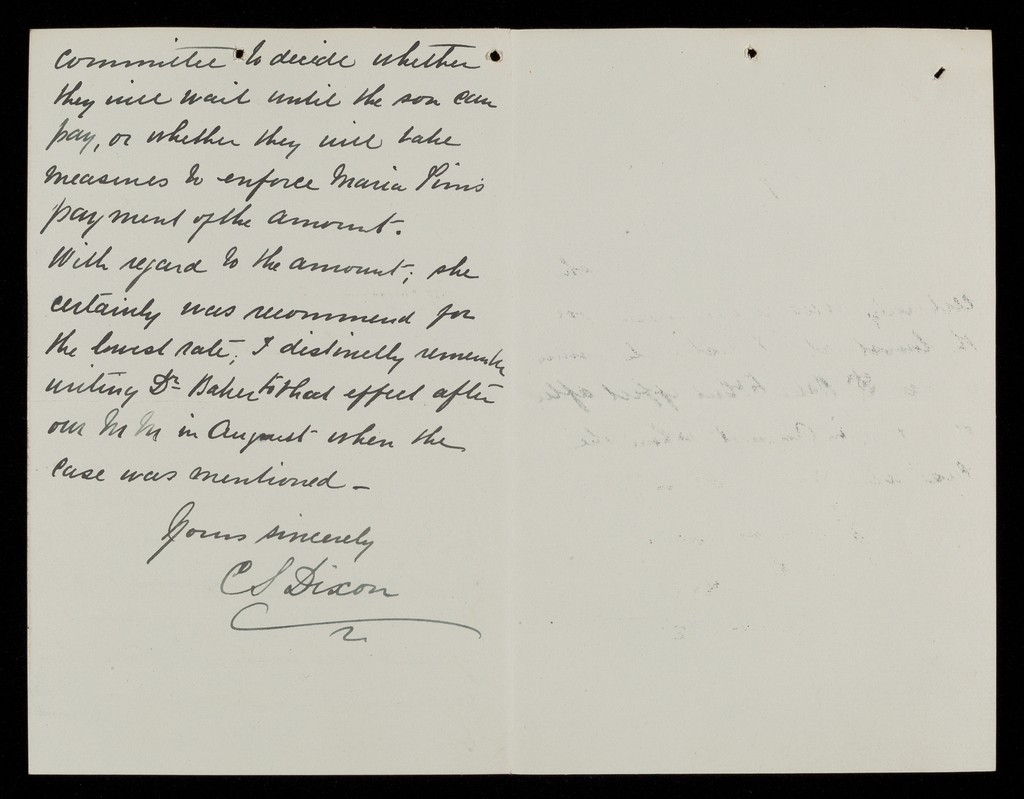 committee to decide whether
they will wait until the son can
pay, or whether they will take
measures to enforce Maria Pim's
payment of the amount.
With regard to the amount; she
certainly was recommend for
the lowest rate; I distinctly remember
writing Dr Baker to that effect after
our M M in August when the
case was mentioned –
Yours sincerely
C S Dixon